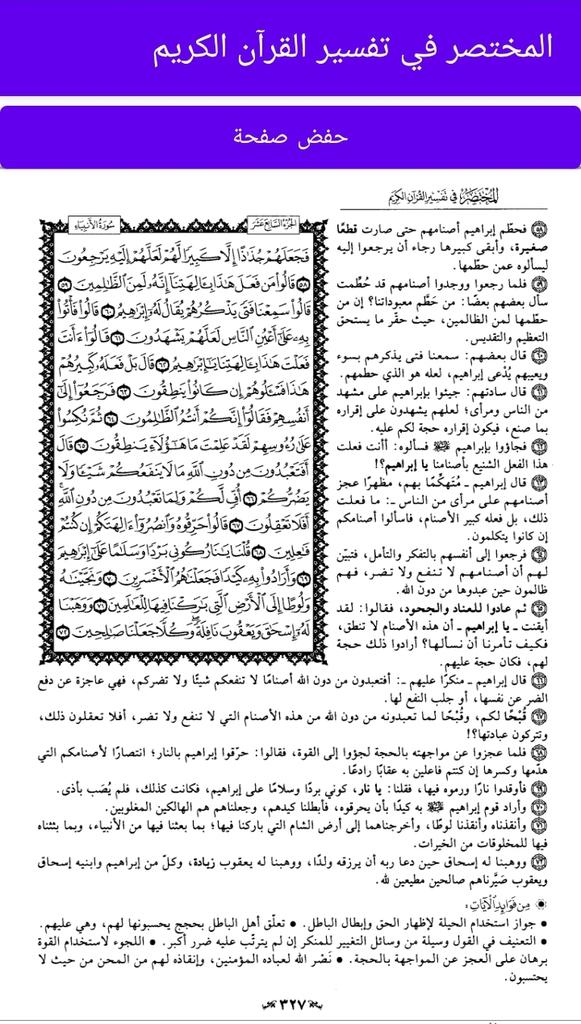 المختصر في تفسير القرآن الكريم
حفض صفحة
المختصر في تفسير القرآن الكريم
الجزء السابع عشر
سورة الأنبياء
فَجَعَلَهُمْ جُذَاذًا إِلَّا كَبِيرًا لَّهُمْ لَعَلَّهُمْ إِلَيْهِ يَرْجِعُونَ
٥٨ قَالُوا۟ مَن فَعَلَ هَٰذَا بِـَٔالِهَتِنَآ إِنَّهُۥ لَمِنَ ٱلظَّٰلِمِينَ ٥٩
قَالُوا۟ سَمِعْنَا فَتًى يَذْكُرُهُمْ يُقَالُ لَهُۥٓ إِبْرَٰهِيمُ ٦٠ قَالُوا۟ فَأْتُوا۟
بِهِۦ عَلَىٰٓ أَعْيُنِ ٱلنَّاسِ لَعَلَّهُمْ يَشْهَدُونَ ٦١ قَالُوٓا۟ ءَأَنتَ
فَعَلْتَ هَٰذَا بِـَٔالِهَتِنَا يَٰٓإِبْرَٰهِيمُ ٦٢ قَالَ بَلْ فَعَلَهُۥ كَبِيرُهُمْ
هَٰذَا فَسْـَٔلُوهُمْ إِن كَانُوا۟ يَنطِقُونَ ٦٣ فَرَجَعُوٓا۟ إِلَىٰٓ
أَنفُسِهِمْ فَقَالُوٓا۟ إِنَّكُمْ أَنتُمُ ٱلظَّٰلِمُونَ ٦٤ ثُمَّ نُكِسُوا۟
عَلَىٰ رُءُوسِهِمْ لَقَدْ عَلِمْتَ مَا هَٰٓؤُلَآءِ يَنطِقُونَ ٦٥ قَالَ
أَفَتَعْبُدُونَ مِن دُونِ ٱللَّهِ مَا لَا يَنفَعُكُمْ شَيْـًٔا وَلَا
يَضُرُّكُمْ ٦٦ أُفٍّ لَّكُمْ وَلِمَا تَعْبُدُونَ مِن دُونِ ٱللَّهِ
أَفَلَا تَعْقِلُونَ ٦٧ قَالُوا۟ حَرِّقُوهُ وَٱنصُرُوٓا۟ ءَالِهَتَكُمْ إِن كُنتُمْ
فَٰعِلِينَ ٦٨ قُلْنَا يَٰنَارُ كُونِى بَرْدًا وَسَلَٰمًا عَلَىٰٓ إِبْرَٰهِيمَ
٦٩ وَأَرَادُوا۟ بِهِۦ كَيْدًا فَجَعَلْنَٰهُمُ ٱلْأَخْسَرِينَ ٧٠ وَنَجَّيْنَٰهُ
وَلُوطًا إِلَى ٱلْأَرْضِ ٱلَّتِى بَٰرَكْنَا فِيهَا لِلْعَٰلَمِينَ ٧١ وَوَهَبْنَا
لَهُۥٓ إِسْحَٰقَ وَيَعْقُوبَ نَافِلَةً وَكُلًّا جَعَلْنَا صَٰلِحِينَ ٧٢
٥٨ فحطّم إبراهيم أصنامهم حتى صارت قطعًا
صغيرة، وأبقى كبيرها رجاء أن يرجعوا إليه
ليسألوه عمن حطّمها.
٥٩ فلما رجعوا ووجدوا أصنامهم قد حُطِّمت
سأل بعضهم بعضًا: من حَطَّم معبوداتنا؟ إن من
حطّمها لمن الظالمين، حيث حقّر ما يستحق
التعظيم والتقديس.
٦٠ قال بعضهم: سمعنا فتى يذكرهم بسوء
ويعيبهم يُدْعى إبراهيم، لعله هو الذي حطمهم.
٦١ قال سادتهم: جيئوا بإبراهيم على مشهد
من الناس ومرأى؛ لعلهم يشهدون على إقراره
بما صنع، فيكون إقراره حجة لكم عليه.
٦٢ فجاؤوا بإبراهيم ﷺ فسألوه: أأنت فعلت
هذا الفعل الشنيع بأصنامنا يا إبراهيم؟!
٦٣ قال إبراهيم ـ مُتهكِّمًا بهم، مظهرًا عجز
أصنامهم على مرأى من الناس ـ: ما فعلت
ذلك، بل فعله كبير الأصنام، فاسألوا أصنامكم
إن كانوا يتكلمون.
٦٤ فرجعوا إلى أنفسهم بالتفكر والتأمل، فتبيّن
لهم أن أصنامهم لا تنفع ولا تضر، فهم
ظالمون حين عبدوها من دون الله.
٦٥ ثم عادوا للعناد والجحود، فقالوا: لقد
أيقنت ـ يا إبراهيم ـ أن هذه الأصنام لا تنطق،
فكيف تأمرنا أن نسألها؟ أرادوا ذلك حجة
لهم، فكان حجة عليهم.
٦٦ قال إبراهيم ـ منكرًا عليهم ـ: أفتعبدون من دون الله أصنامًا لا تنفعكم شيئًا ولا تضركم، فهي عاجزة عن دفع
الضر عن نفسها، أو جلب النفع لها.
٦٧ قُبْحًا لكم، وقُبْحًا لما تعبدونه من دون الله من هذه الأصنام التي لا تنفع ولا تضر، أفلا تعقلون ذلك،
وتتركون عبادتها؟!
٦٨ فلما عجزوا عن مواجهته بالحجة لجؤوا إلى القوة، فقالوا: حرّقوا إبراهيم بالنار؛ انتصارًا لأصنامكم التي
هدّمها وكسرها إن كنتم فاعلين به عقابًا رادعًا.
٦٩ فأوقدوا نارًا ورموه فيها، فقلنا: يا نار، كوني بردًا وسلامًا على إبراهيم، فكانت كذلك، فلم يُصَب بأذى.
٧٠ وأراد قوم إبراهيم ﷺ به كيدًا بأن يحرقوه، فأبطلنا كيدهم، وجعلناهم هم الهالكين المغلوبين.
٧١ وأنقذناه وأنقذنا لوطًا، وأخرجناهما إلى أرض الشام التي باركنا فيها؛ بما بعثنا فيها من الأنبياء، وبما بثثناه
فيها للمخلوقات من الخيرات.
٧٢ ووهبنا له إسحاق حين دعا ربه أن يرزقه ولدًا، ووهبنا له يعقوب زيادة، وكلّ من إبراهيم وابنيه إسحاق
ويعقوب صَيَّرناهم صالحين مطيعين لله.
مِن فَوَائِدِ الآيَاتِ:
• جواز استخدام الحيلة لإظهار الحق وإبطال الباطل. • تعلّق أهل الباطل بحجج يحسبونها لهم، وهي عليهم.
• التعنيف في القول وسيلة من وسائل التغيير للمنكر إن لم يترتّب عليه ضرر أكبر. • اللجوء لاستخدام القوة
برهان على العجز عن المواجهة بالحجة. • نَصْر الله لعباده المؤمنين، وإنقاذه لهم من المحن من حيث لا
يحتسبون.
٣٢٧